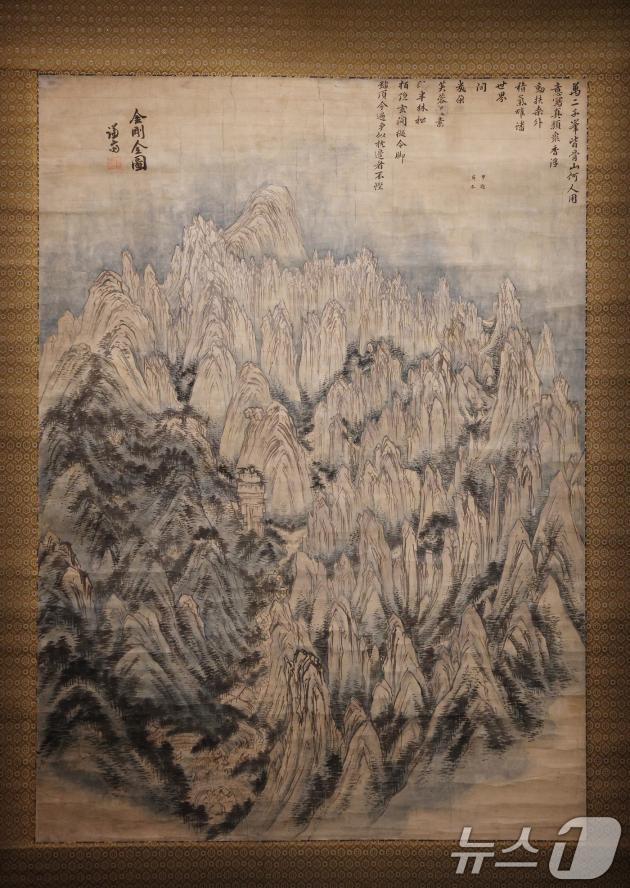 萬二千峯皆骨山何人用
意寫眞顔衆香浮
動扶桑外
積氣雄蟠
世界
間
幾朶
芙蓉揚素
彩半林松
栢隱玄關從令脚
踏須今遍爭似枕邊看不慳
甲寅
冬題
金剛全圖
謙齋
뉴스1